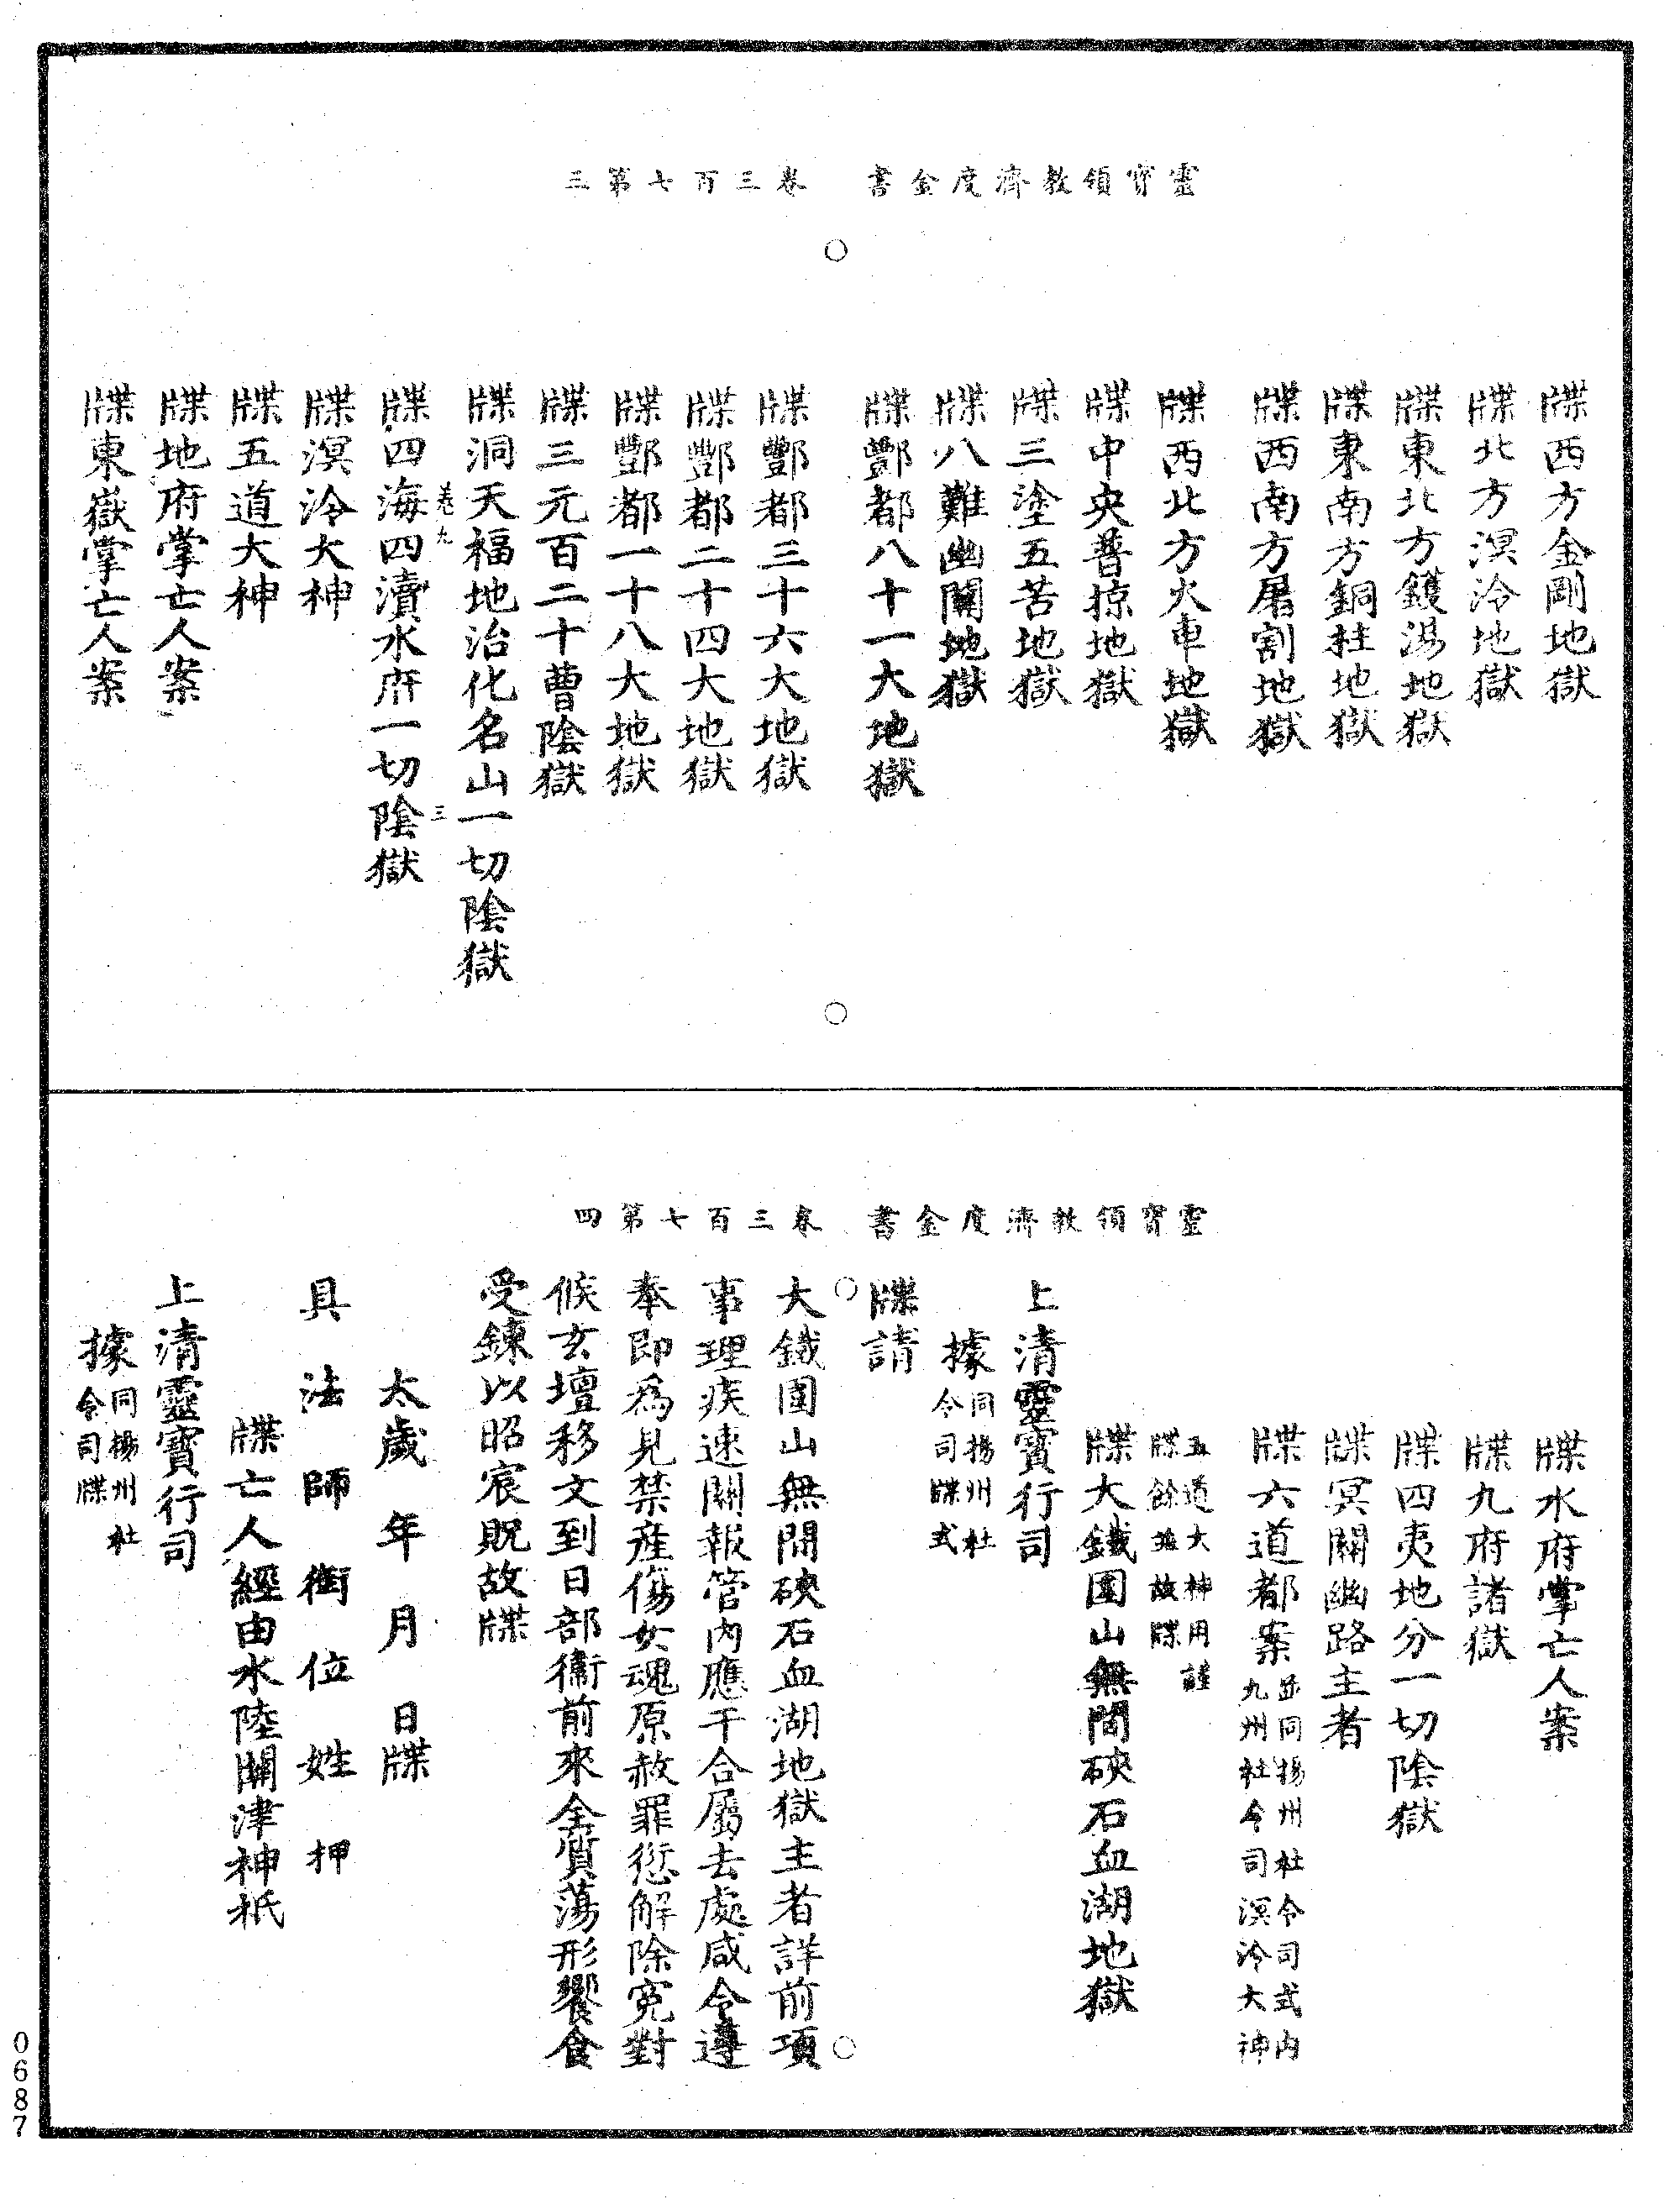 靈寶領教濟度金書　卷三百七第三
牒西方金剛地獄
牒北方溟泠地獄
牒東北方鑊湯地獄
牒東南方銅柱地獄
牒西南方屠割地獄
牒西北方火車地獄
牒中央普掠地獄
牒三塗五苦地獄
牒八難幽關地獄
牒酆都八十一大地獄
牒酆都三十六大地獄
牒酆都二十四大地獄
牒酆都一十八大地獄
牒三元百二十曹陰獄
牒洞天福地治化名山一切陰獄
羙九　三
牒四海四瀆水府一切陰獄
牒溟泠大神
牒五道大神
牒地府掌亡人案
牒東嶽掌亡人案
靈寶領教濟度金書　卷三百七第四
牒水府掌亡人案
牒九府諸獄
牒四夷地分一切陰獄
牒冥關幽路主者
牒六道都案並同楊州社令司式内
九州社令司溟泠大神
五道大神用謹
牒餘並故牒
牒大鐵圍山無間硤石血湖地獄
上清靈寶行司
據同楊州社
令司牒式
牒請
大鐵圍山無間硤石血湖地獄主者詳前項
事理疾速關報管内應干合屬去處咸令遵
奉即為見禁産傷女魂原赦罪愆解除寃對
候玄壇移文到日部衛前來全質蕩形饗食
受鍊以昭宸貺故牒
太歲　年　月　日牒
具法師銜位姓押
牒亡人經由水陸關津神祇
上清靈寶行司
據同楊州社
令司牒
0687